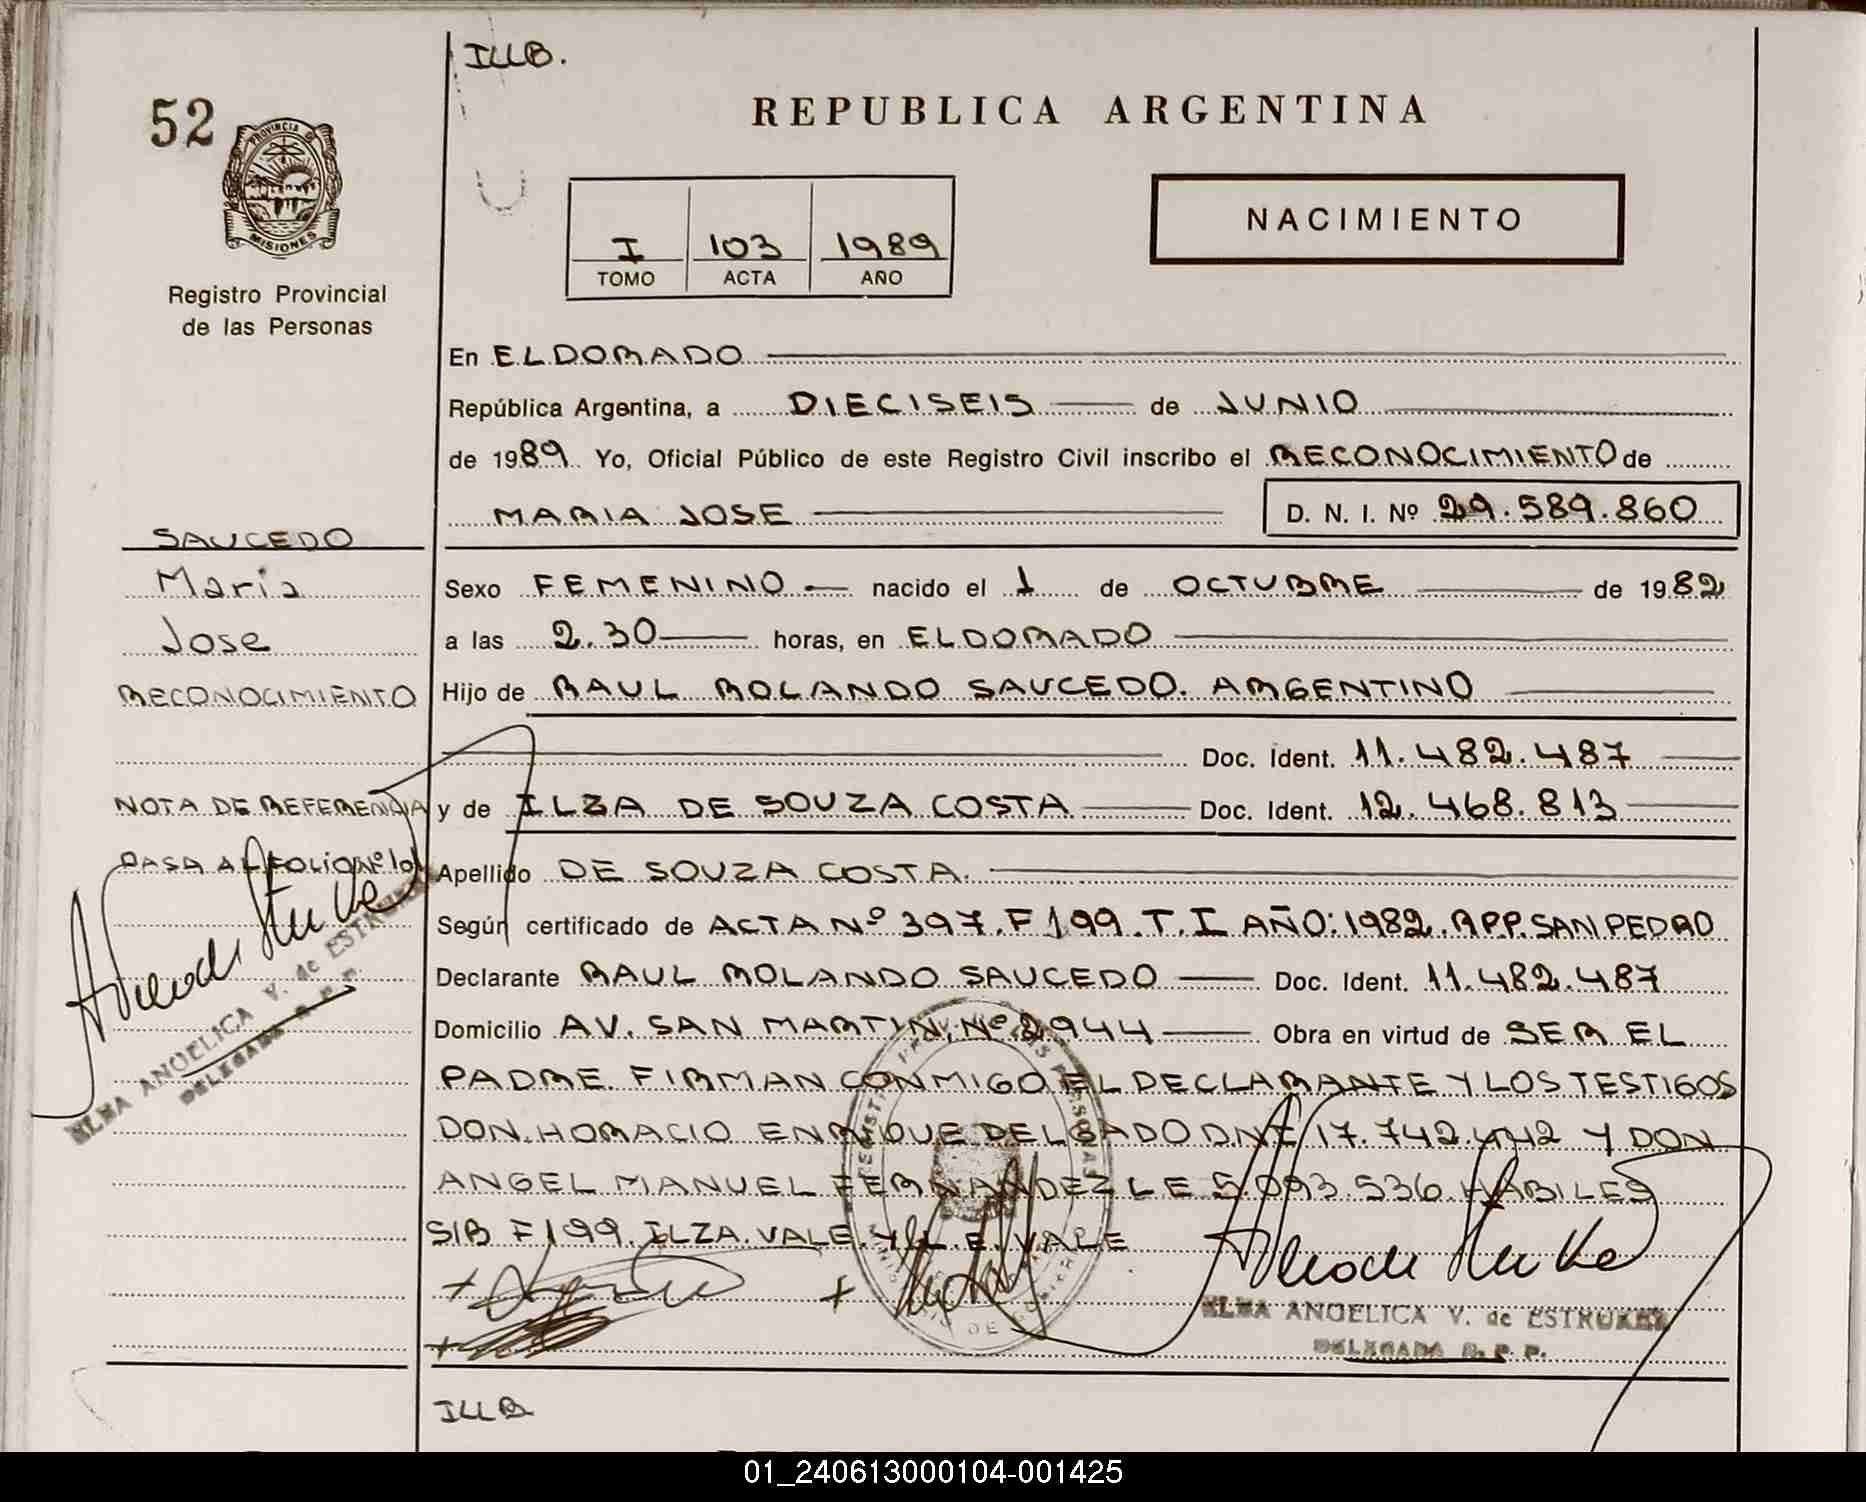 ILLB.
52
REPUBLICA ARGENTINA
PROVINCIA D
MISIONES
NACIMIENTO
I 103 1989
TOMO ACTA AÑO
Registro Provincial
de las Personas
En ELDORADO
República Argentina, a DIECISEIS de JUNIO
de 1989 Yo, Oficial Público de este Registro Civil inscribo el RECONOCIMIENTO de
MARIA JOSE D. N. I. Nº 29.589.860
SAUCEDO
Maria
Jose
RECONOCIMIENTO
Sexo FEMENINO nacido el 1 de OCTUBRE de 1982
a las 2.30 horas, en ELDORADO
Hijo de RAUL ROLANDO SAUCEDO. ARGENTINO
Doc. Ident. 11.482.487
NOTA DE REFERENCIA
PASA AL FOLIO Nº 101
y de ILZA DE SOUZA COSTA Doc. Ident. 12.468.813
Apellido DE SOUZA COSTA.
Según certificado de ACTA Nº 397. F 199. T. I AÑO: 1982. RPP. SAN PEDRO
Declarante RAUL ROLANDO SAUCEDO Doc. Ident. 11.482.487
Domicilio AV. SAN MARTIN. Nº 2944 Obra en virtud de SER EL
PADRE. FIRMAN CONMIGO EL DECLARANTE Y LOS TESTIGOS
DON. HORACIO ENRIQUE DELGADO D.N.I 17.742.442 Y DON
ANGEL MANUEL FERNANDEZ L E 5.093.536 HABILES
S/B F 199. ILZA. VALE. Y L. E. VALE
ELBA ANGELICA V. de ESTRUKEL
DELEGADA R. P. P.
ELBA ANGELICA V. de ESTRUKEL
DELEGADA R. P. P.
ILLB
01_240613000104-001425